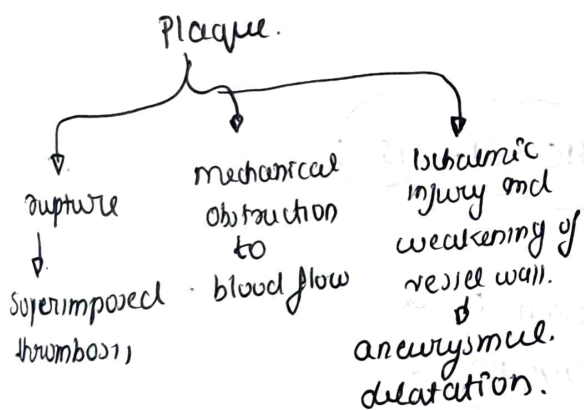 Plaque.
rupture
superimposed
thrombosis
mechanical
obstruction
to
blood flow
Ischaemic
injury and
weakening of
vessel wall.
aneurysmal.
dilatation.